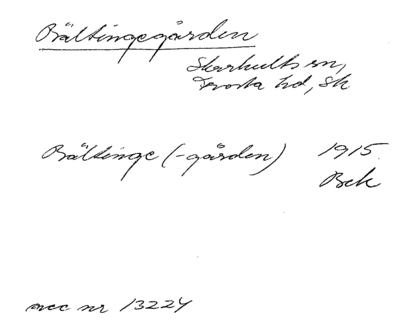 Bältingegården
Skarhults sn,
Frosta hd, Sk
Bältinge (-gården) 1915
Bek
acc nr 13224